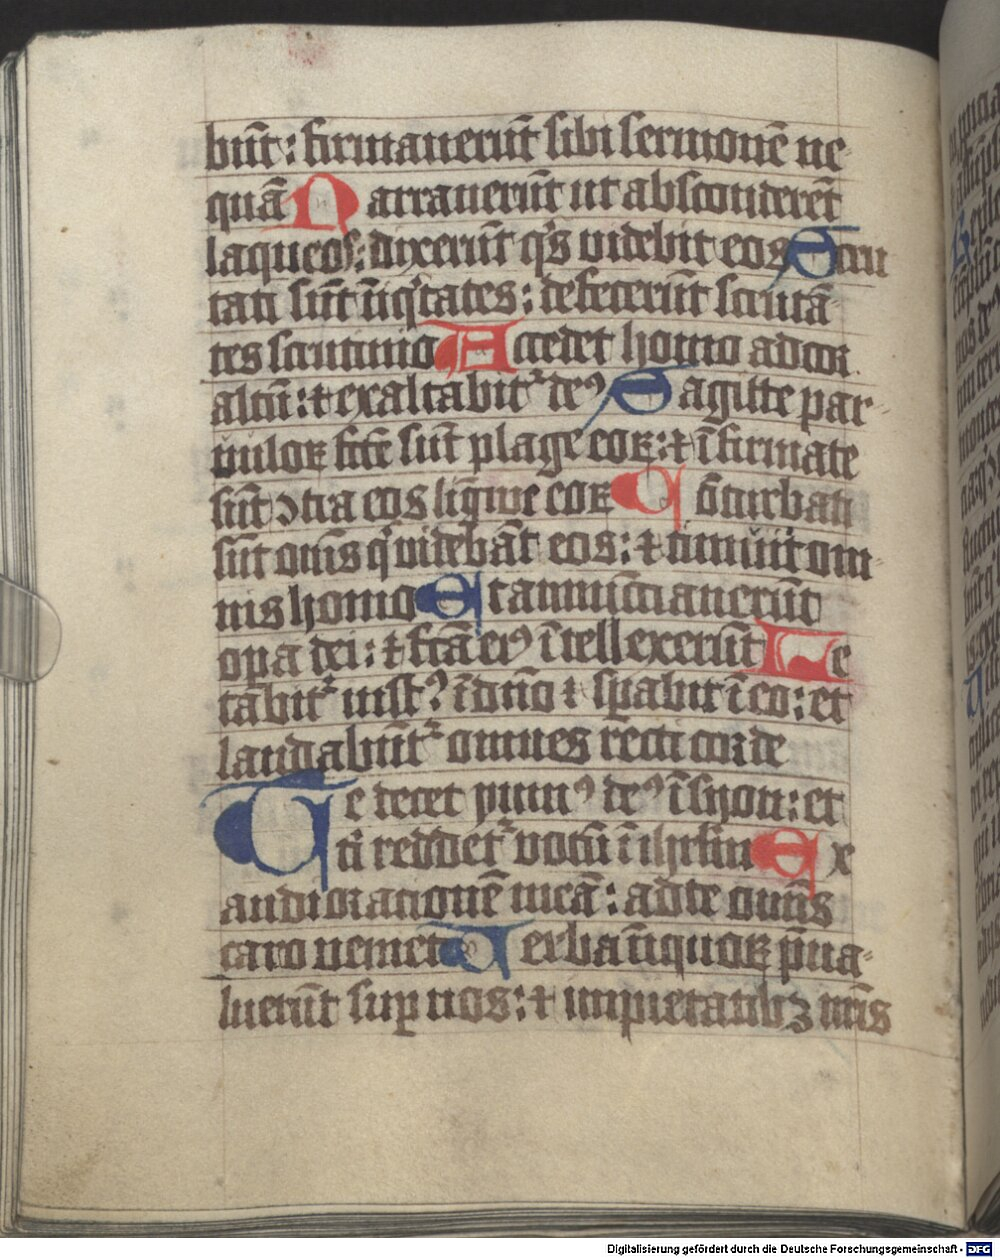 bunt: firmauerūt sibi sermonē ne-
quā Narrauerūt ut absconderēt
laqueos: dixerūt qͥs videbit eos Scru
tati sūt īiqͥtates: defecerūt scrutā-
tes scrutinio Accedet homo ad cor
altū: ⁊ exaltabitᷣ deꝰ Sagitte par-
uuloꝝ fc̄e sūt plage eoꝝ: ⁊ īfirmate
sūt ↄtra eos līgwe eoꝝ Cōturbati
sūt om̄is qͥ videbāt eos: ⁊ timuit om-
nis homo Et annūctiauerūt
opa dei: ⁊ fc̄a eiꝰ ītellexerūt Le
tabitᷣ iustꝰ ī dn̄o ⁊ spabit ī eo: et
laudabūtᷣ omnes recti corde
Te decet ymnꝰ deꝰ ī syon: et
ti reddetᷣ votū ī ihrl̄m Ex
audi orationē meā: ad te om̄is
caro veniet Verba īiquoꝝ p̄ua-
luerūt suꝑ nos: ⁊ impietatibꝫ nr̄is
Digitalisierung gefördert durch die Deutsche Forschungsgemeinschaft - DFG